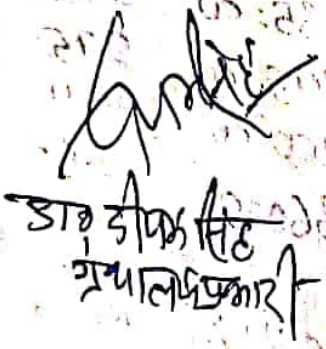 डा० दीपक सिंह
ग्रंथालय प्रभारी